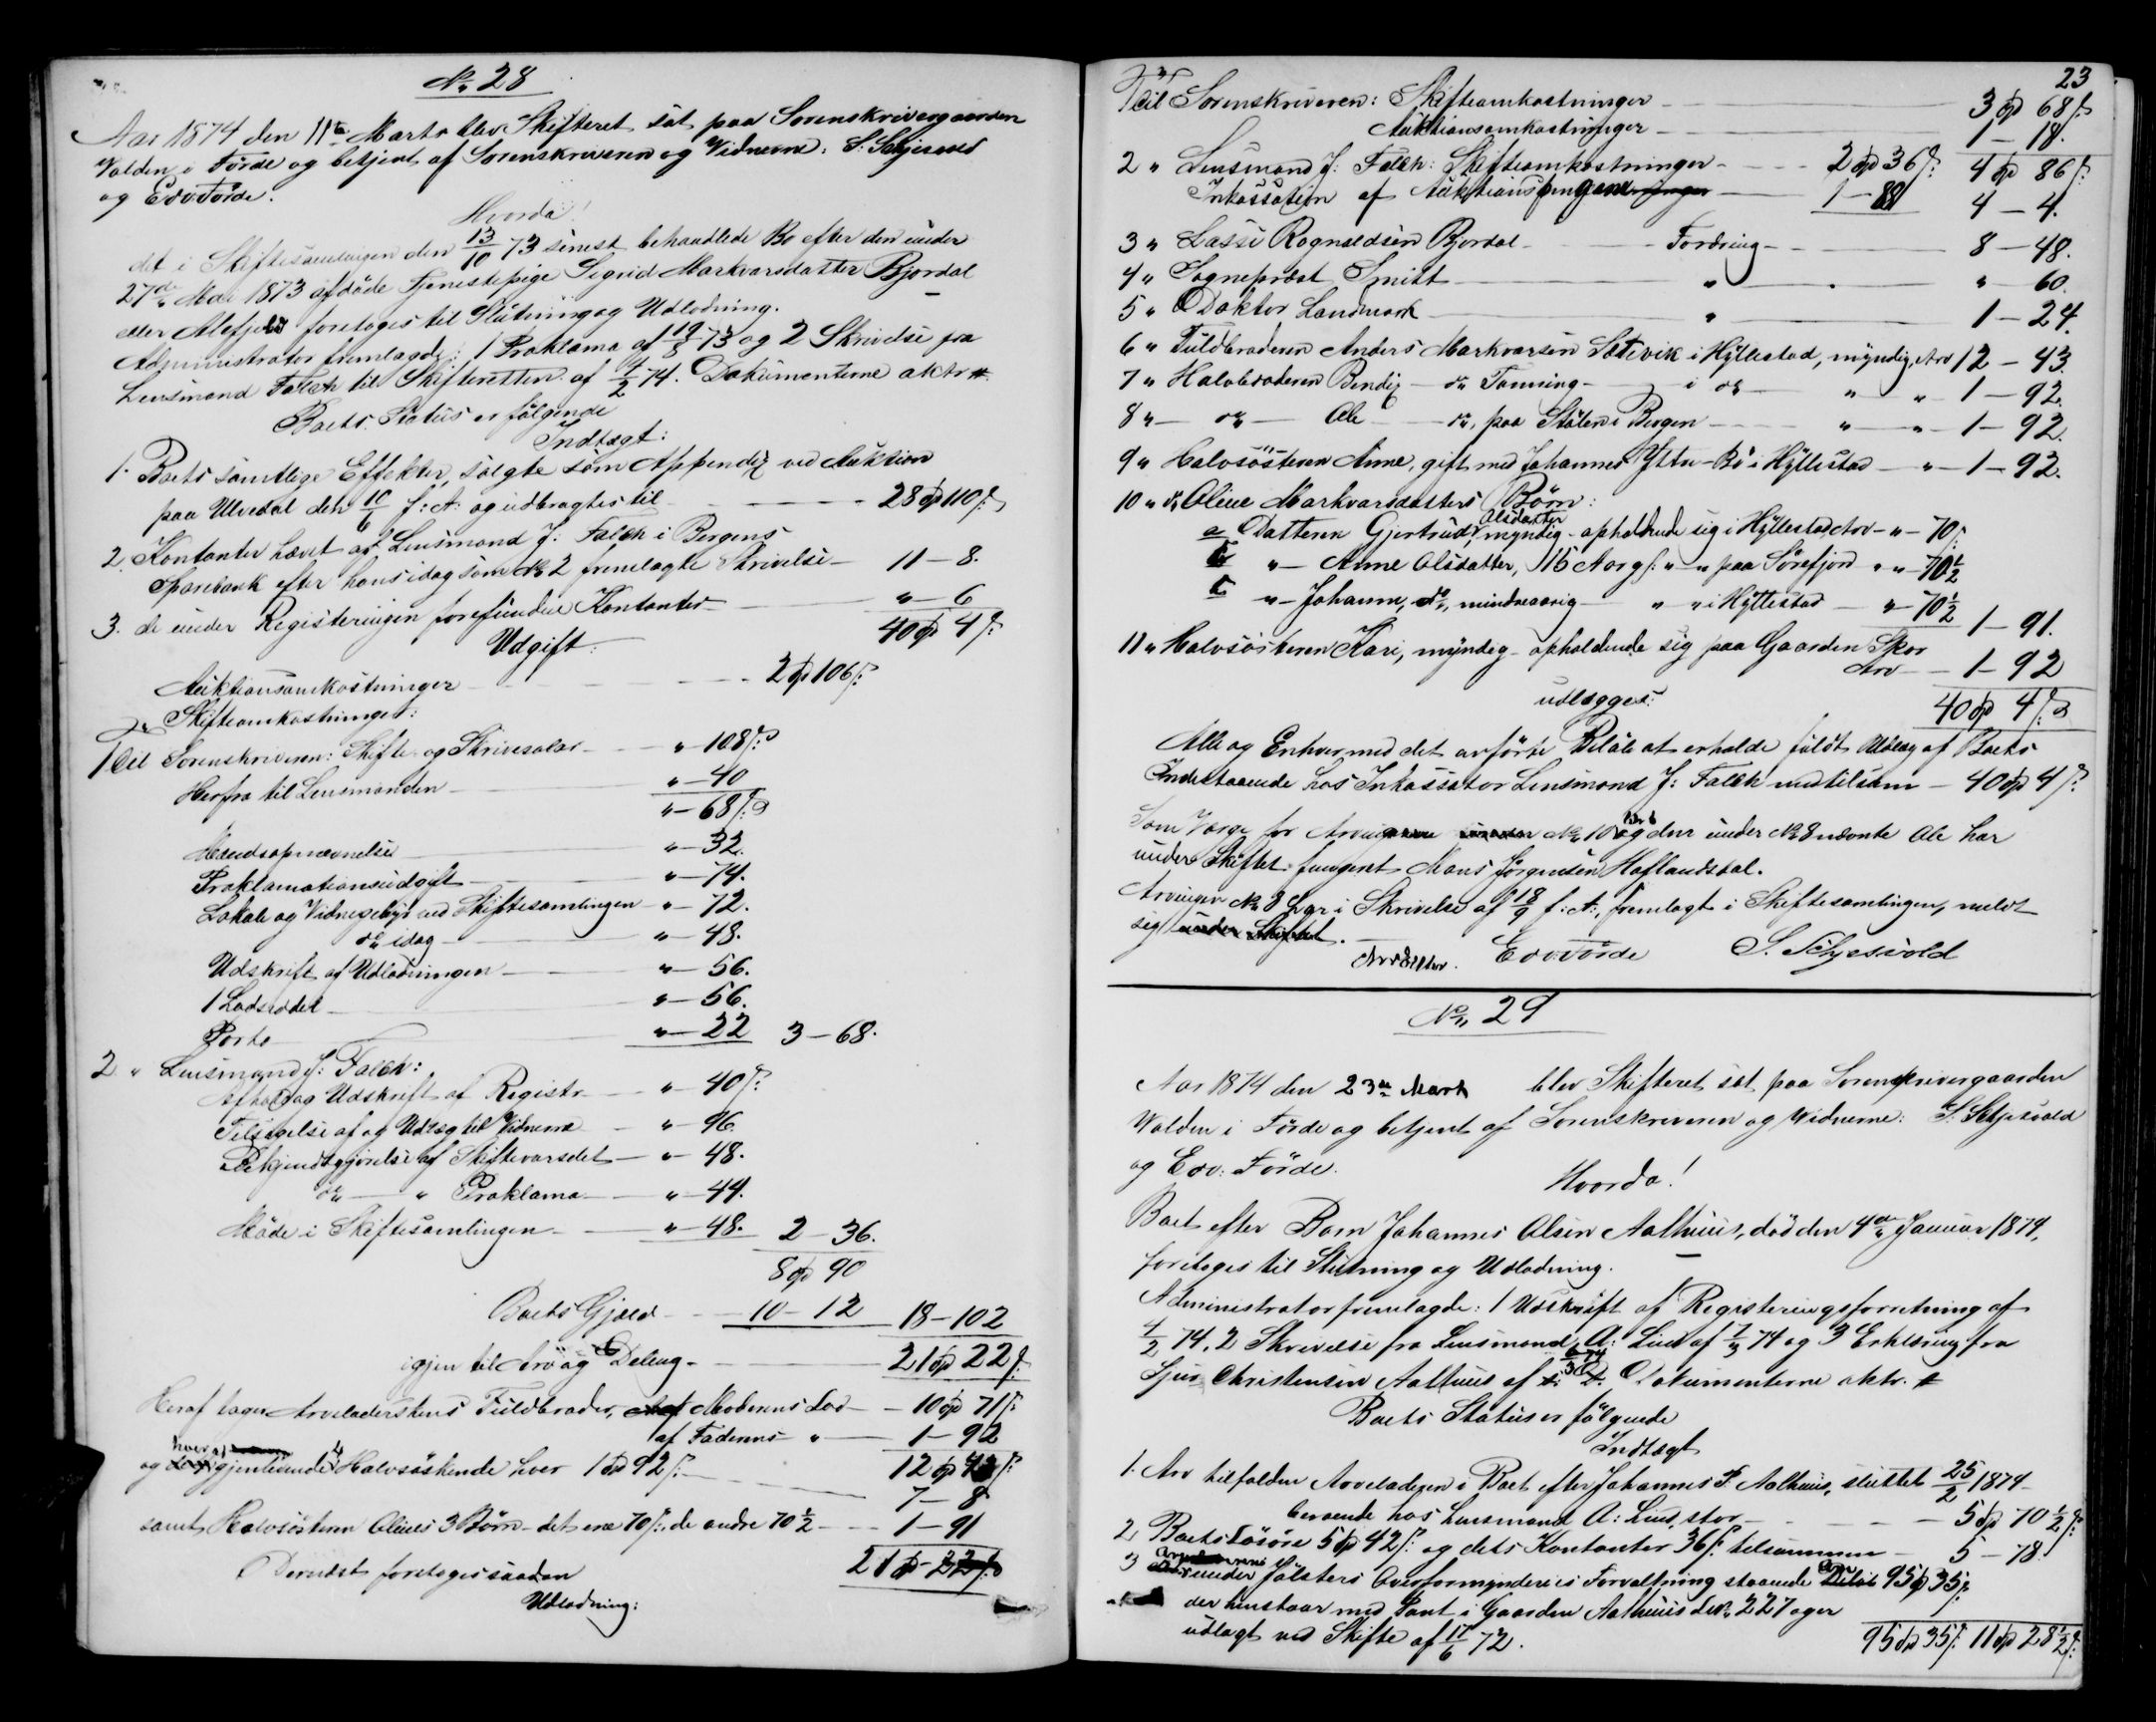 No. 28
Aar 1874 den 11te Marts blev Skifteret sat paa Sorenskrivergaarden
Valden i Førde og betjent af Sorenskriveren og Vidnerne: S. Schjesvold
og Edv. Førde.
Hvorda!
det i Skiftesamlingen den 13/10 73 sidst behandlede Bo efter den under
27de Mai 1873 afdøde Tjenestepige Sigrid Markvarsdatter Bjordal
eller foretoges til Slutning og Udlodning.
Administrator fremlagde: 1 Proklama af 19/8 73 og 2 Skrivelse fra
Lensmand Falch til Skifteretten af 4/2 74. Dokumenterne aktr
Boets Status er følgende
Indtægt:
1. Boets samtlige Effekter, solgte som Appendix ved Auktion
paa Ulvedal den 10/6 f: A: og udbragtes til 28 Spd 110 s:
2. Kontanter hævet af Lensmand J: Falch i Bergens
Sparebank efter hans idag som No 2 fremlagte Skrivelse 11 - 8.
3. de under Registeringen forefundne Kontanter " - 6
40 Spd 4 s:
Udgift:
Auktionsomkostninger 2 Spd 106 s:
Skifteomkostninger:
1 til Sorenskriveren: Skifte- og Skrivesalær " 108 s:
Herfra til Lensmanden " - 40
" - 68 s:
Mandsopnævnelse " - 32.
Proklamationsudgift " - 74.
Lokale og Vidnegebyr ved Skiftesamlingen " - 72.
do idag " - 48.
Udskrift af Udlodningen " - 56.
1 Lodseddel " - 56.
Porto " - 22 3 - 68.
2. " Lensmand J: Falch:
Afhold og Udskrift af Registr. " - 40 s:
Tilsigelse af og Udlæg til Vidnerne " - 96.
Bekjendtgjørelse af Skiftevarselet " - 48.
do " Proklama " - 44.
Møde i Skiftesamlingen " - 48. 2 - 36.
8 Spd 90
Boets Gjæld 10 - 12 18 - 102
igjen til Arv og Deling 21 Spd 22 s:
Heraf tager Arveladerskens Fuldbroder, af Moderens Lod 10 Spd 71 s:
af Faderens " 1 - 92
12 Spd 43 s:
og hver af gjenlevende 4 Halvsøskende hver 1 Spd 92 s: 7 - 8
samt Halvsøsteren Olines 3 Børn - det ene 70 s:, de andre 70 1/2 1 - 91
21 Spd - 22 s:
Dernæst foretoges saadan
Udlodning:
23
1 Til Sorenskriveren: Skifteomkostninger 3 Spd 68 s:
Auktionsomkostninger 1 - 18.
4 Spd 86 s:
2 " Lensmand J: Falch: Skifteomkostninger 2 Spd 36 s:
Inkassation af Auktionspengene 1 - 88 4 - 4.
3 " Lasse Rognaldsen Bjordal Fordring 8 - 48.
4 " Sogneprest Smitt " " - 60.
5 " Doktor Landmark " 1 - 24.
6 " Fuldbroderen Anders Markvarsen Sætevik i Hyllestad, myndig, Arv 12 - 43.
7 " Halvbroderen Bendix do Tonning i do " " 1 - 92.
8 " do Ole do, paa Stølen i Bergen " " 1 - 92.
9 " Halvsøsteren Anne, gift med Johannes Ytre-Bø i Hyllestad " 1 - 92.
10 " do Oline Markvarsdatters Børn:
a Datteren Gjertrud Olsdatter myndig opholdende sig i Hyllestad Arv " 70 s:
b " Anne Olsdatter, 16 Aar gl: " " paa Sørefjord " " 70 1/2
c " Johanne, do, mindreaarig " " i Hyllestad " 70 1/2
1 - 91.
11 " Halvsøsteren Kari, myndig opholdende sig paa Gaarden Skor
Arv 1 - 92
udlægges: 40 Spd 4 s:
Alle og Enhver med det anførte Beløb at erholde fuldt Udlæg af Boets
Indestaaende hos Inkassator Lensmand J: Falch med tilsam 40 Spd 4 s:
Som Værge for Arvingerne No 10 og den under No 8 nævnte Ole har
under Skiftet fungeret Mons Jørgensen Haflandsdal.
Arvingen No 8 har i Skrivelse af 18/9 f: A:, fremlagt i Skiftesamlingen, meldt
sig under Skiftet.
Edv. Førde S. Schjesvold
No. 29
Aar 1874 den 23de Marts blev Skifteret sat paa Sorenskrivergaarden
Valden i Førde og betjent af Sorenskriveren og Vidnerne: S: Schjesvold
og Edv: Førde.
Hvorda!
Boet efter Barn Johannes Olsen Aalhuus, død den 4de Januar 1874,
foretoges til Slutning og Udlodning.
Administrator fremlagde: 1 Udskrift af Registeringsforretning af
4/2 74, 2 Skrivelse fra Lensmand A: Lind af 7/3 74 og 3 Erklæring fra
Sjur Christensen Aalhuus af Dokumenterne aktr.
Boets Status er følgende
Indtægt
1. Arv tilfalden Arveladeren i Boet efter Johannes P. Aalhuus, sluttet 25/2 1874
beroende hos Lensmand A: Lind, stor 5 Spd 70 1/2 s:
2, Boets Løsøre 5 Spd 42 s: og dets Kontanter 36 s: tilsammen 5 - 78
3 under Jølsters Overformynderies Forvaltning staaende 95 Spd 35 s:
der henstaar mod Pant i Gaarden Aalhuus LNo 227 ager
udlagt ved Skifte af 17/6 72. 95 Spd 35 s: 11 Spd 28 1/2 s: